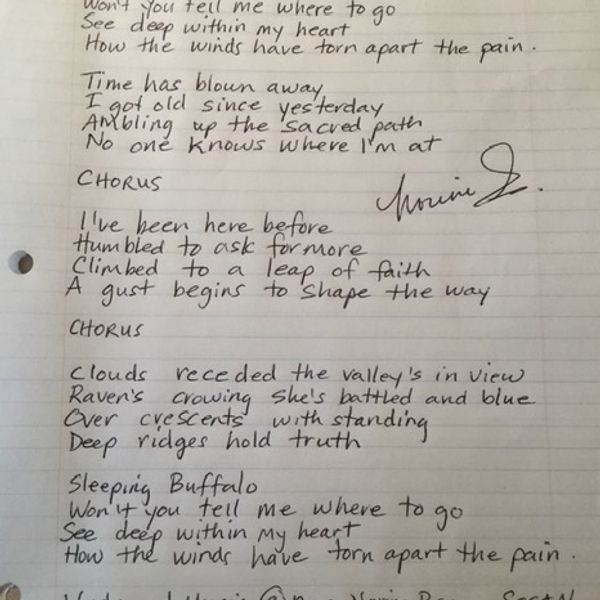 Won't you tell me where to go
See deep within my heart
How the winds have torn apart the pain.
Time has blown away
I got old since yesterday
Ambling up the sacred path
No one knows where I'm at
CHORUS
I've been here before
Humbled to ask for more
Climbed to a leap of faith
A gust begins to shape the way
CHORUS
Clouds receded the valley's in view
Raven's crowing she's battled and blue
Over crescents with standing
Deep ridges hold truth
Sleeping Buffalo
Won't you tell me where to go
See deep within my heart
How the winds have torn apart the pain.